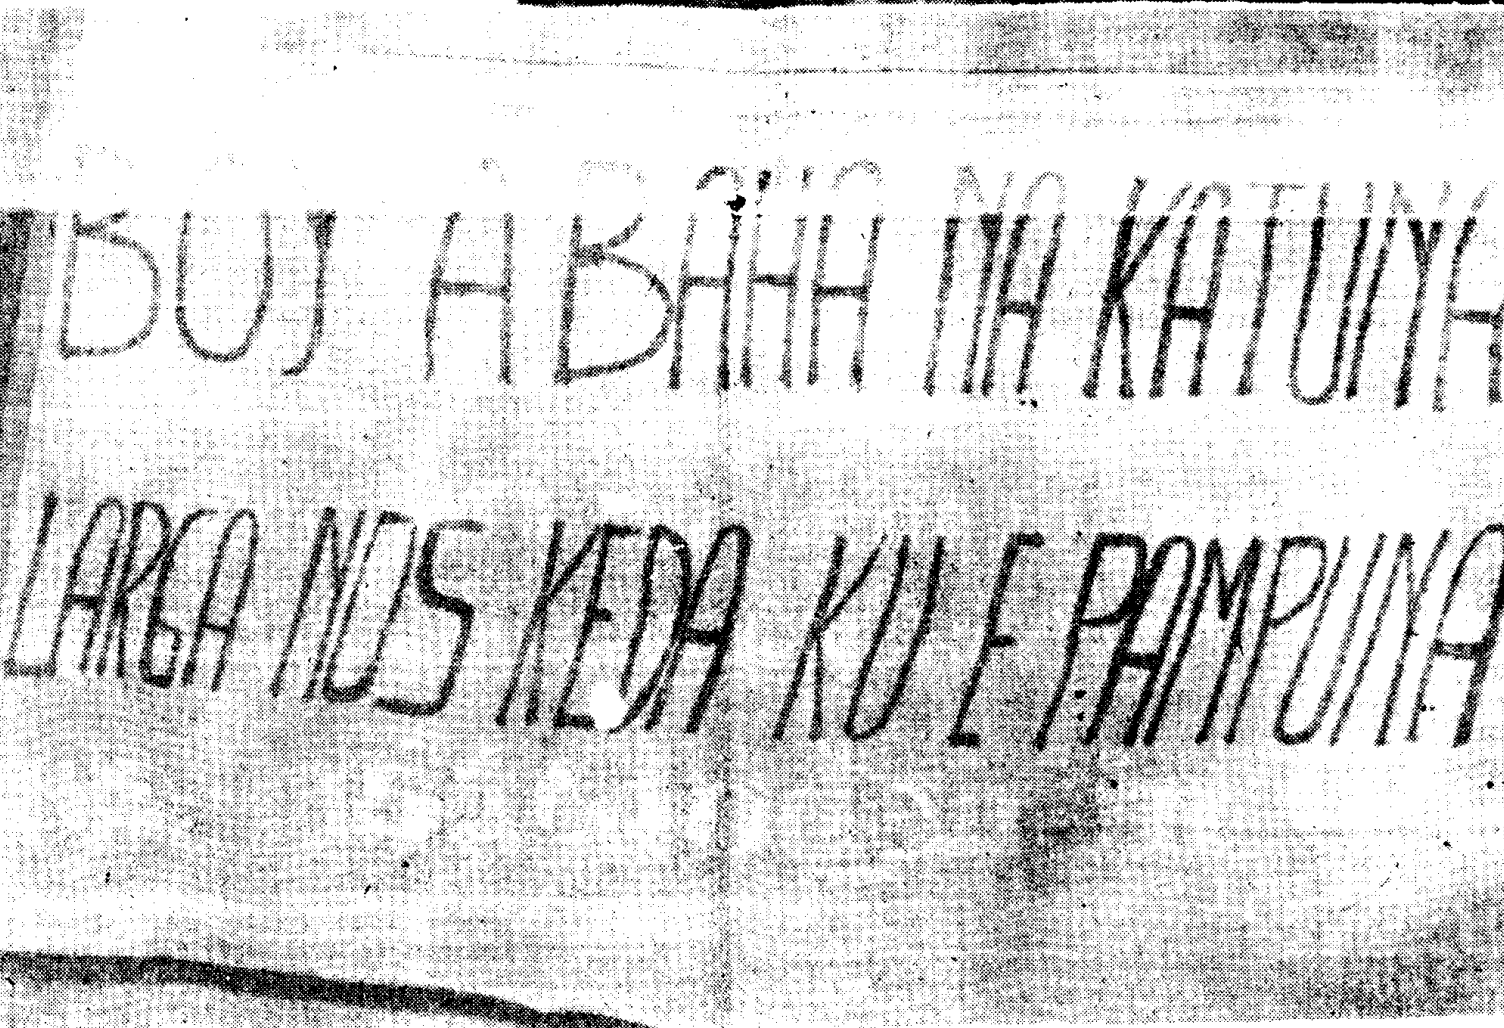 BOY A BAHA NA KATUNA
LARGA NOS KEDA KU E PAMPUNA